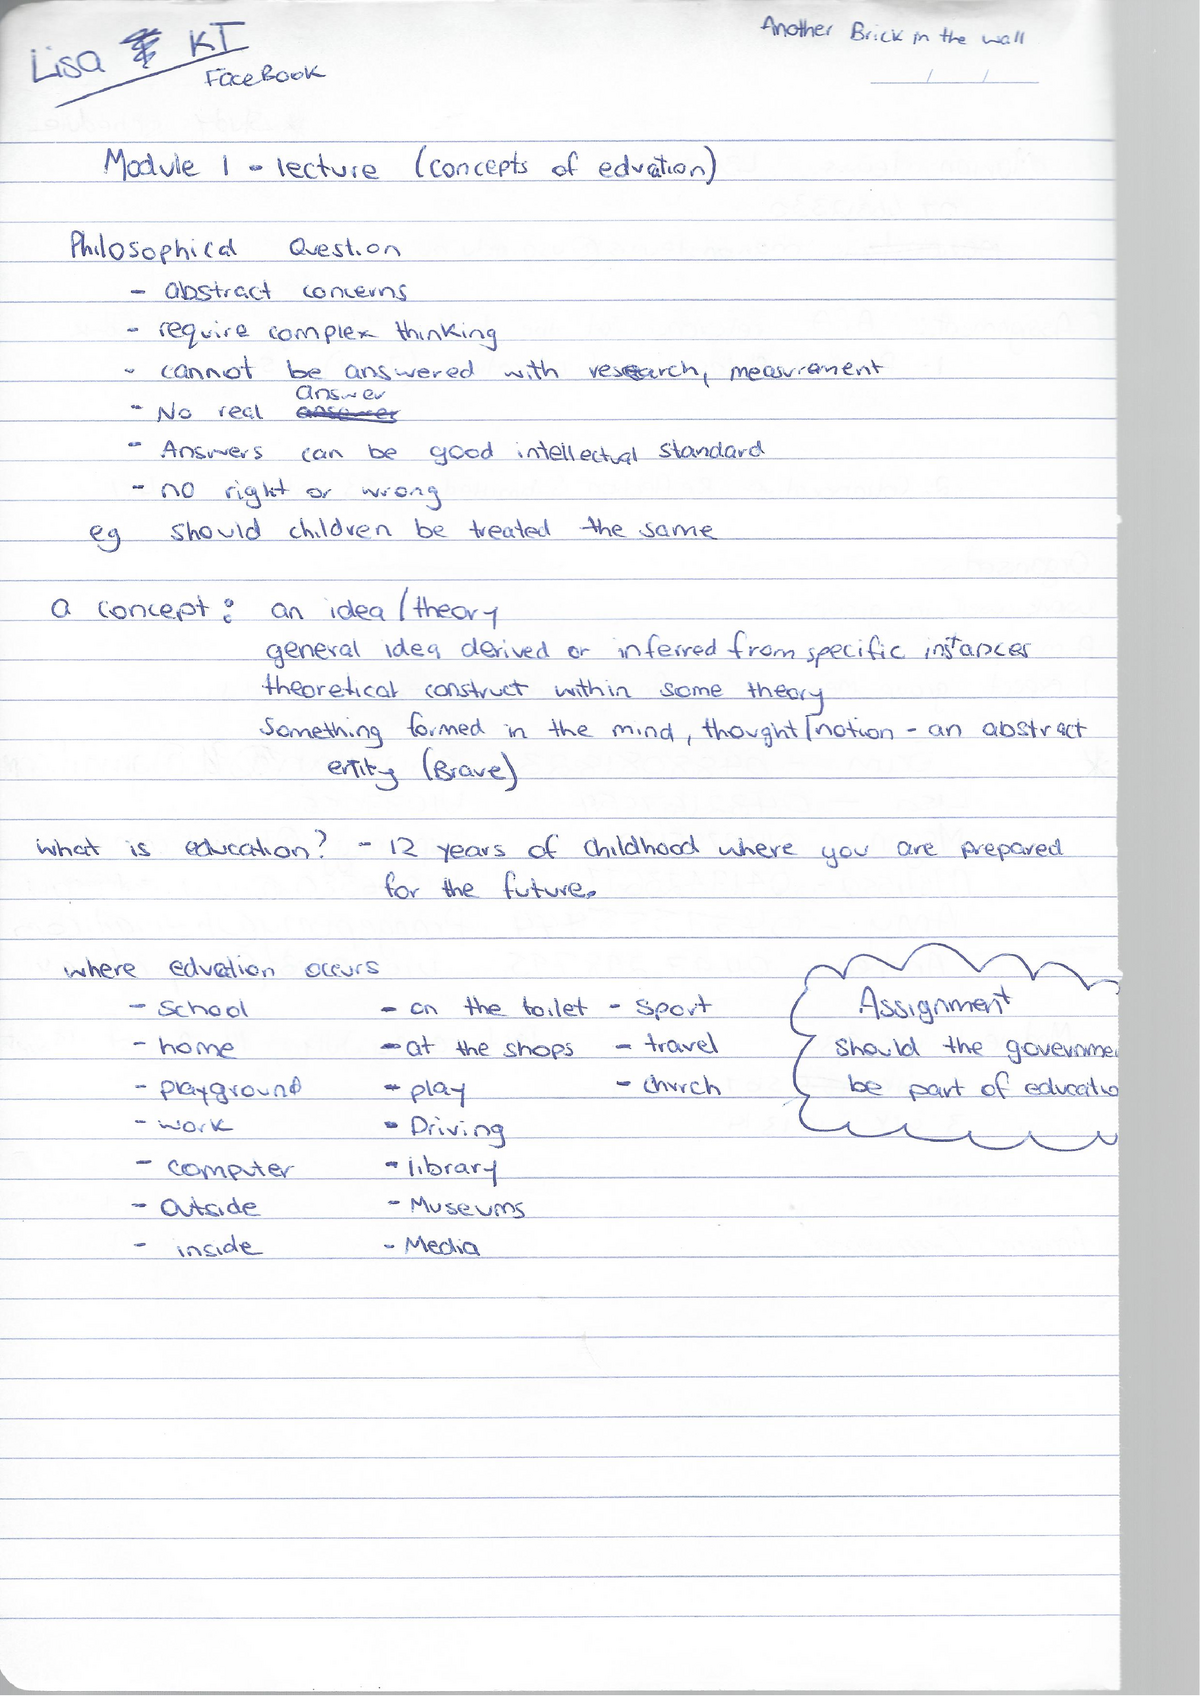 Another Brick in the wall
Lisa KT
FaceBook
Module 1 - lecture (concepts of edvation)
Philosophical Question
- abstract concerns
- require complex thinking
- cannot be answered with research, measurament
answer
- No real answer
- Answers can be good intellectual standard
- no right or wrong
eg should children be treated the same
a concept: an idea/theory
general idea derived or inferred from specific instances
theoretical construct within some theory
Something formed in the mind, thought/notion - an abstract
entity (Brave)
what is education? - 12 years of childhood where you are prepared
for the future.
where edvation occurs
- School - on the toilet - sport
- home - at the shops - travel
- playground - play - church
- work - Driving
- computer - library
- outside - Museums
- inside - Media
Assignment
should the governme
be part of educatio